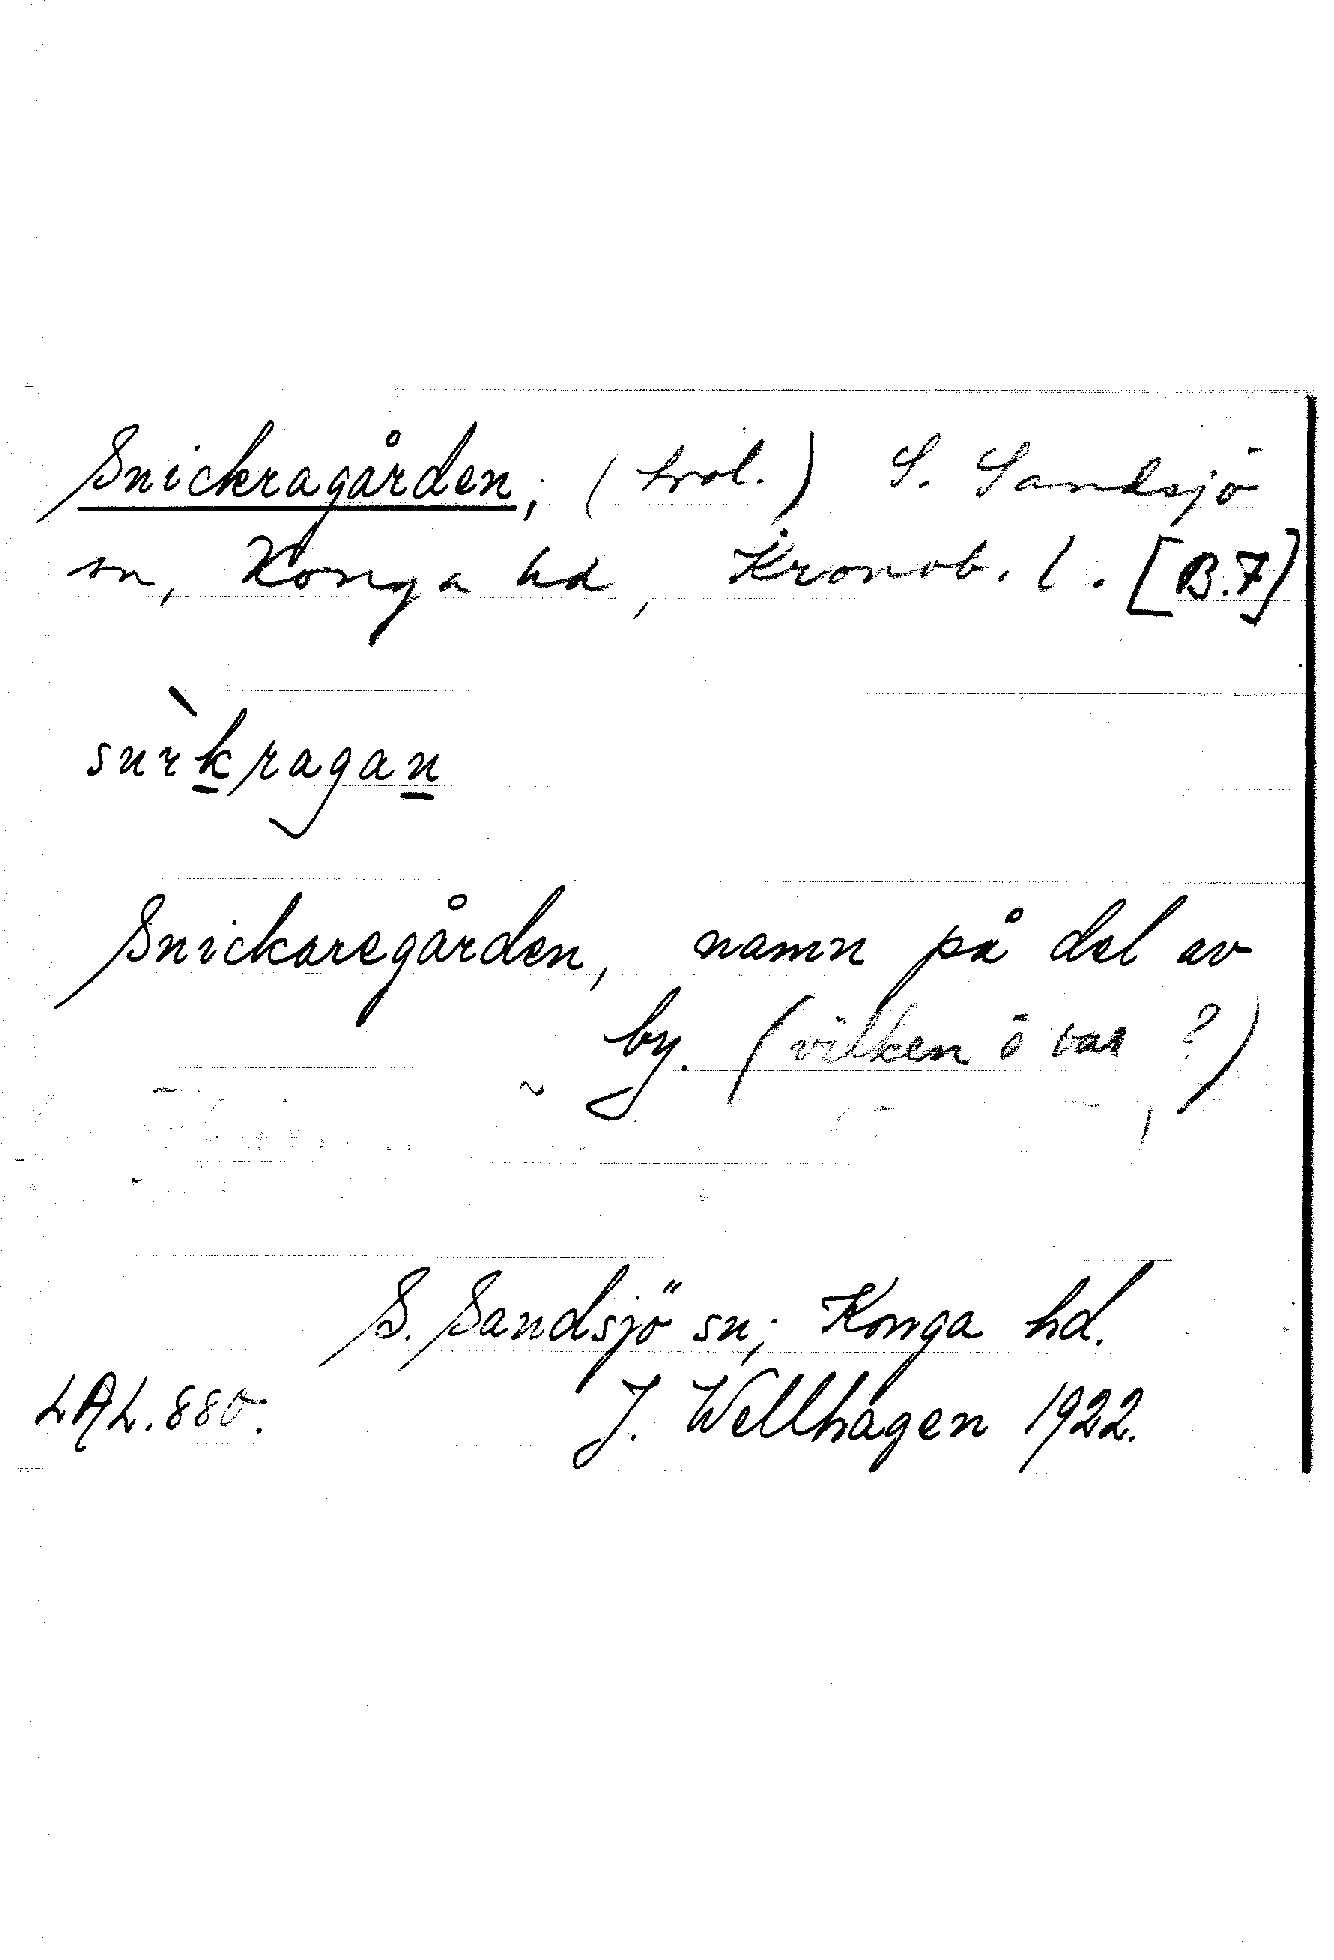 Snickragården, (trol.) S. Sandsjö
sn, Konga hd, Kronob. l. [B.7]
snìkragan
Snickaregården, namn på del av
by. (vilken o var ?)
S. Sandsjö sn; Konga hd.
LAL. 880. J. Wellhagen 1922.